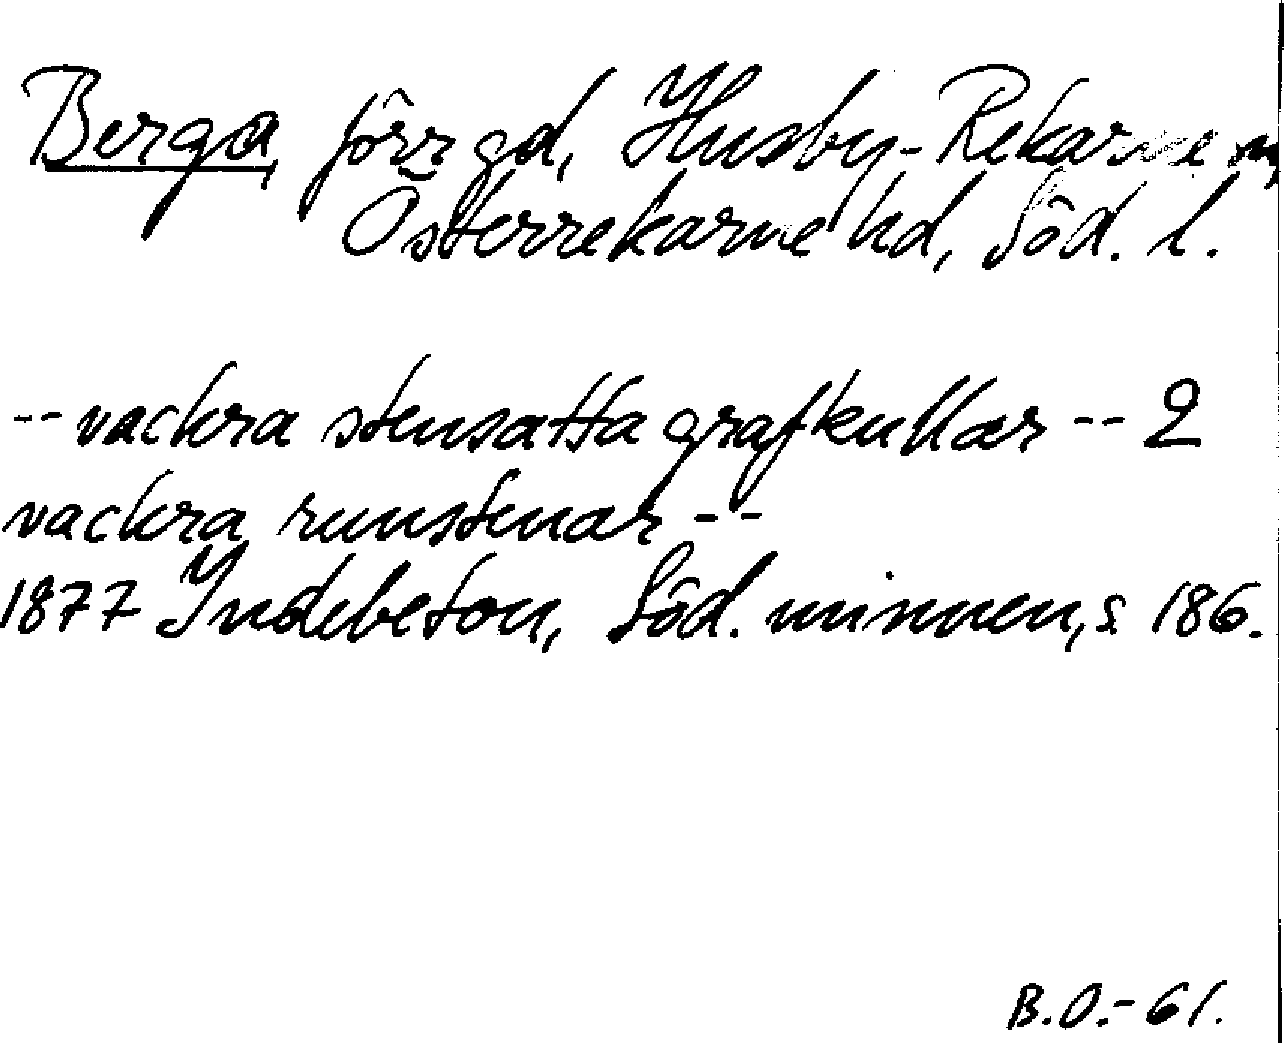 Berga, förr gd, Husby-Rekarne sn,
Österrekarne hd, Söd. l.
-- vackra stensatta grafkullar -- 2
vackra runstenar --
1877 Indebetou, Söd. minnen, s. 186.
B.O.-61.